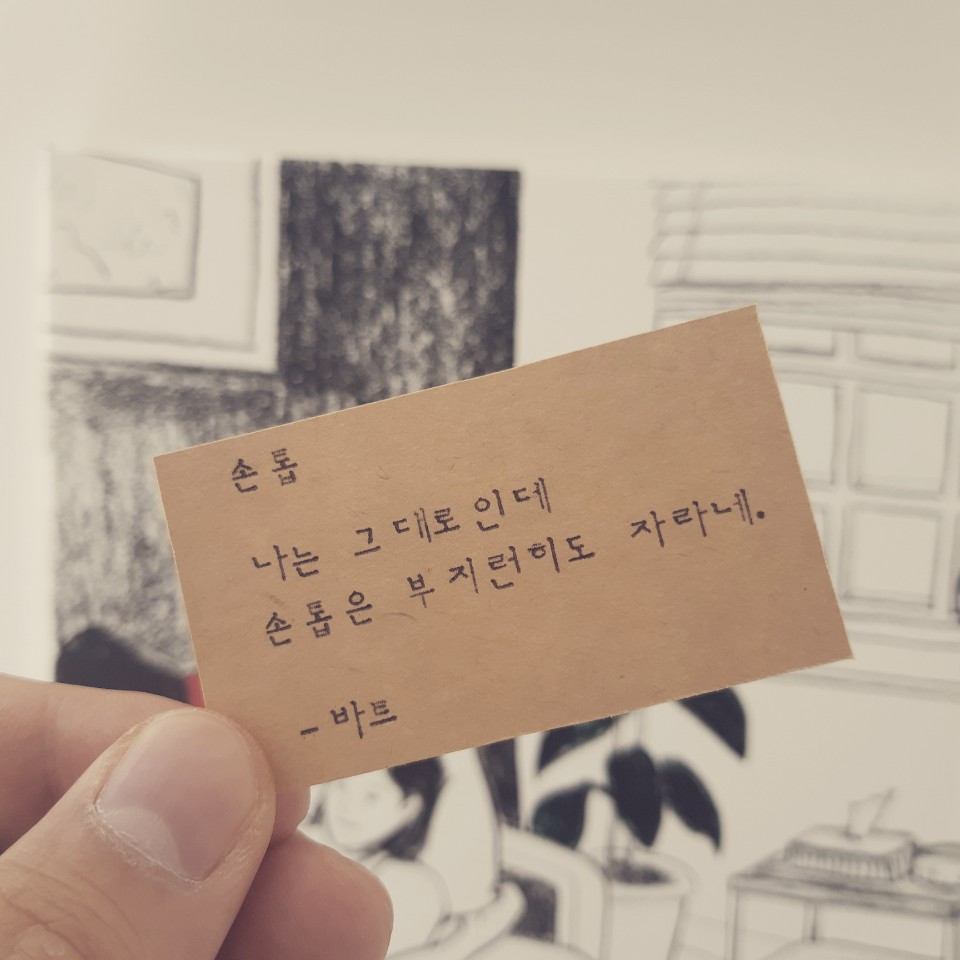 손톱
나는 그대로인데
손톱은 부지런히도 자라네.
-바트